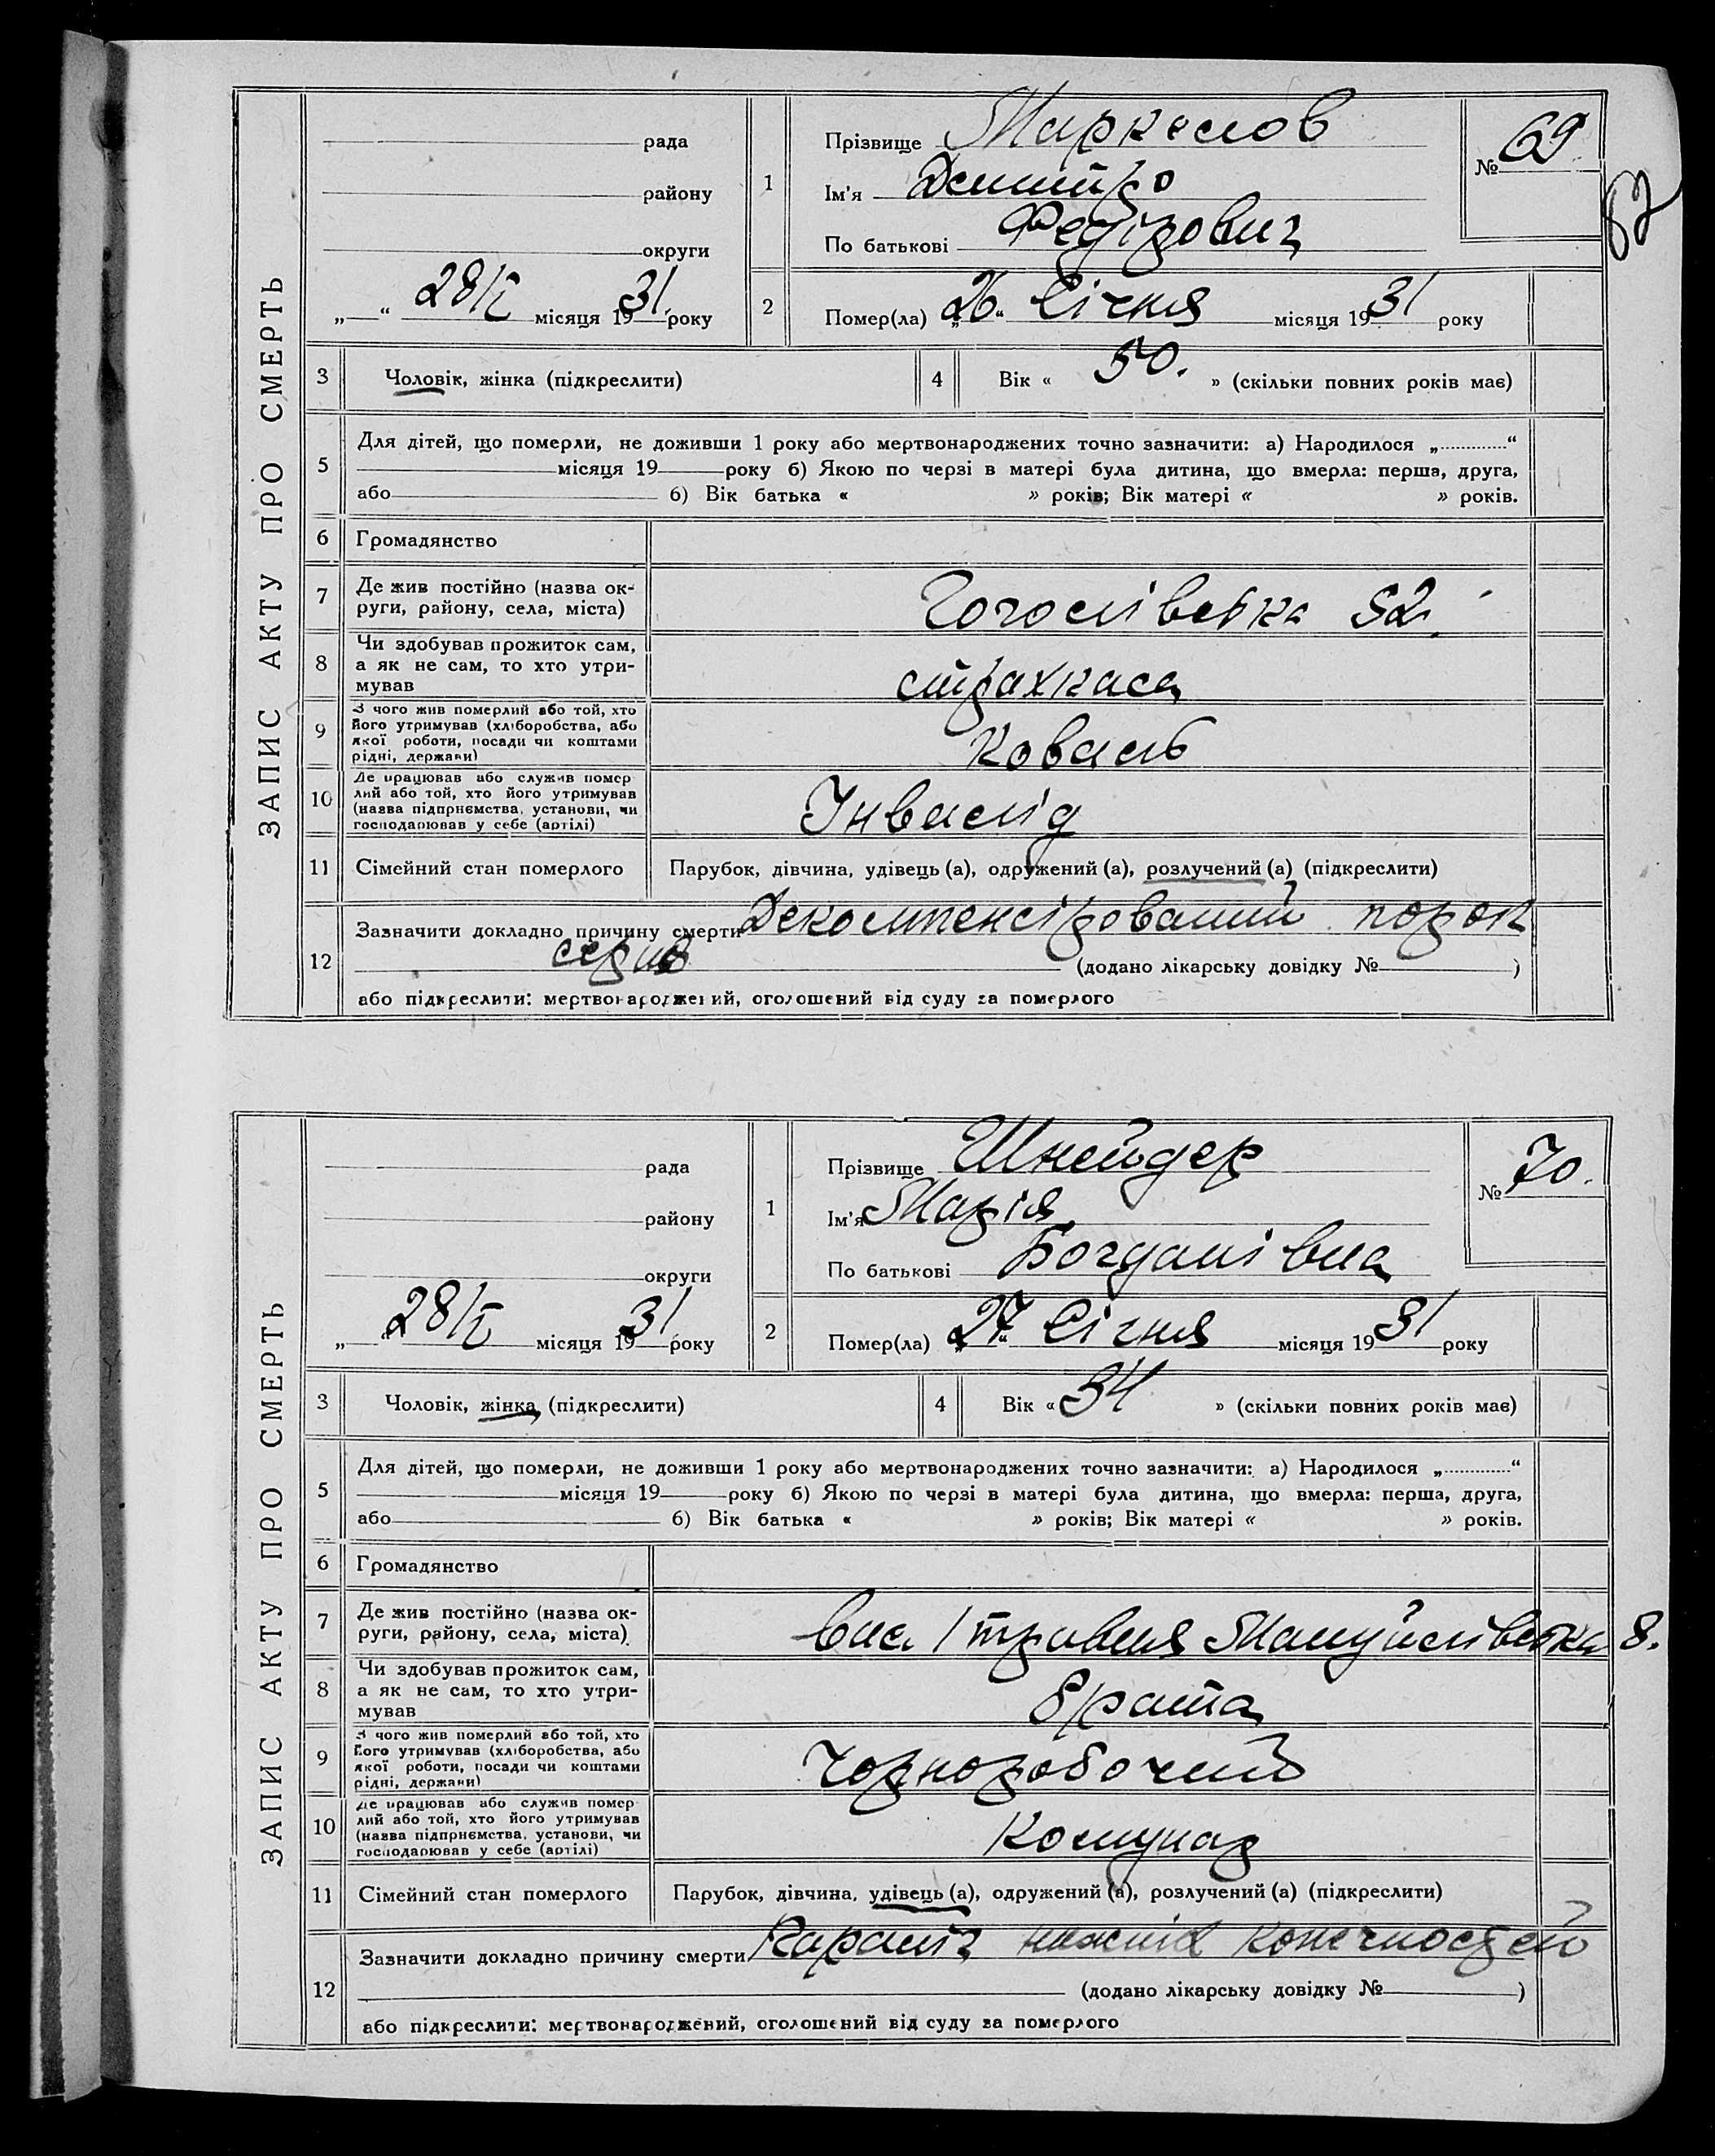 ЗАПИС АКТУ ПРО СМЕРТЬ
рада
району
округи
„ “ 28/I місяця 1931 року
1
Прізвище Маркелов
Ім'я Дмитро
По батькові Федірович
№ 69
57
2
Помер(ла) „26“ Січня місяця 1931 року
3 Чоловік, жінка (підкреслити)
4 Вік « 50. » (скільки повних років має)
5 Для дітей, що померли, не доживши 1 року або мертвонароджених точно зазначити: а) Народилося „ “
місяця 19 року б) Якою по черзі в матері була дитина, що вмерла: перша, друга,
або б) Вік батька « » років; Вік матері « » років.
6 Громадянство
7 Де жив постійно (назва ок-
руги, району, села, міста)
52.
8 Чи здобував прожиток сам,
а як не сам, то хто утри-
мував
страхкаса
9 З чого жив померлий або той, хто
його утримував (хліборобства, або
якої роботи, посади чи коштами
рідні, держави)
Коваль
10 Де працював або служив помер
лий або той, хто його утримував
(назва підприємства, установи, чи
господарював у себе (артілі)
Інвалід
11 Сімейний стан померлого Парубок, дівчина, удівець (а), одружений (а), розлучений (а) (підкреслити)
12 Зазначити докладно причину смерти Декомпенсірований порок
серця (додано лікарську довідку № )
або підкреслити: мертвонароджений, оголошений від суду за померлого
ЗАПИС АКТУ ПРО СМЕРТЬ
рада
району
округи
„ “ 28/I місяця 1931 року
1
Прізвище Шнейдер
Ім'я Марія
По батькові Богданівна
№ 70.
2
Помер(ла) „27“ Січня місяця 1931 року
3 Чоловік, жінка (підкреслити)
4 Вік « 34 » (скільки повних років має)
5 Для дітей, що померли, не доживши 1 року або мертвонароджених точно зазначити: а) Народилося „ “
місяця 19 року б) Якою по черзі в матері була дитина, що вмерла: перша, друга,
або б) Вік батька « » років; Вік матері « » років.
6 Громадянство
7 Де жив постійно (назва ок-
руги, району, села, міста)
вис. 1 травня Мануйлівська 8.
8 Чи здобував прожиток сам,
а як не сам, то хто утри-
мував
брата
9 З чого жив померлий або той, хто
його утримував (хліборобства, або
якої роботи, посади чи коштами
рідні, держави)
Чорноробочий
10 Де працював або служив помер
лий або той, хто його утримував
(назва підприємства, установи, чи
господарював у себе (артілі)
Комунар
11 Сімейний стан померлого Парубок, дівчина, удівець (а), одружений (а), розлучений (а) (підкреслити)
12 Зазначити докладно причину смерти Параліч нижніх конечностей
(додано лікарську довідку № )
або підкреслити: мертвонароджений, оголошений від суду за померлого